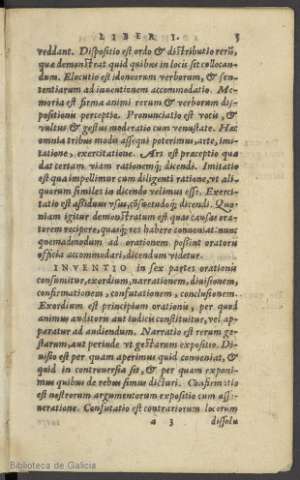 LIBER I. 5
reddant. Dispositio est ordo & distributio rerū,
quæ demonstrat quid quibus in locis sit collocan-
dum. Elocutio est idoneorum verborum, & sen-
tentiarum ad inuentionem accommodatio. Me-
moria est firma animi rerum & verborum dis-
positionis perceptio. Pronunciatio est vocis, &
vultus & gestus moderatio cum venustate. Hæc
omnia tribus modis assequi poterimus, arte, imi-
tatione, exercitatione. Ars est præceptio quæ
dat certam viam rationemq́; dicendi. Imitatio
est qua impellimur cum diligenti ratione, vt ali-
quorum similes in dicendo velimus esse. Exerci-
tatio est assiduus vsus, cōsuetudoq́; dicendi. Quo-
niam igitur demonstratum est quas causas ora-
torem recipere, quasq́; res habere conueniat: nunc
quemadmodum ad orationem possint oratoris
officia accommodari, dicendum videtur.
INVENTIO in sex partes orationis
consumitur, exordium, narrationem, diuisionem,
confirmationem, confutationem, conclusionem.
Exordium est principium orationis, per quod
animus auditoris aut iudicis constituitur, vel ap-
paratur ad audiendum. Narratio est rerum ge-
starum, aut perinde vt gestarum expositio. Di-
uisio est per quam aperimus quid conueniat, &
quid in controuersia sit, & per quam exponi-
mus quibus de rebus simus dicturi. Confirmatio
est nostrorum argumentorum expositio cum asse-
ueratione. Confutatio est contrariorum locorum
a 3 dissolu
Biblioteca de Galicia